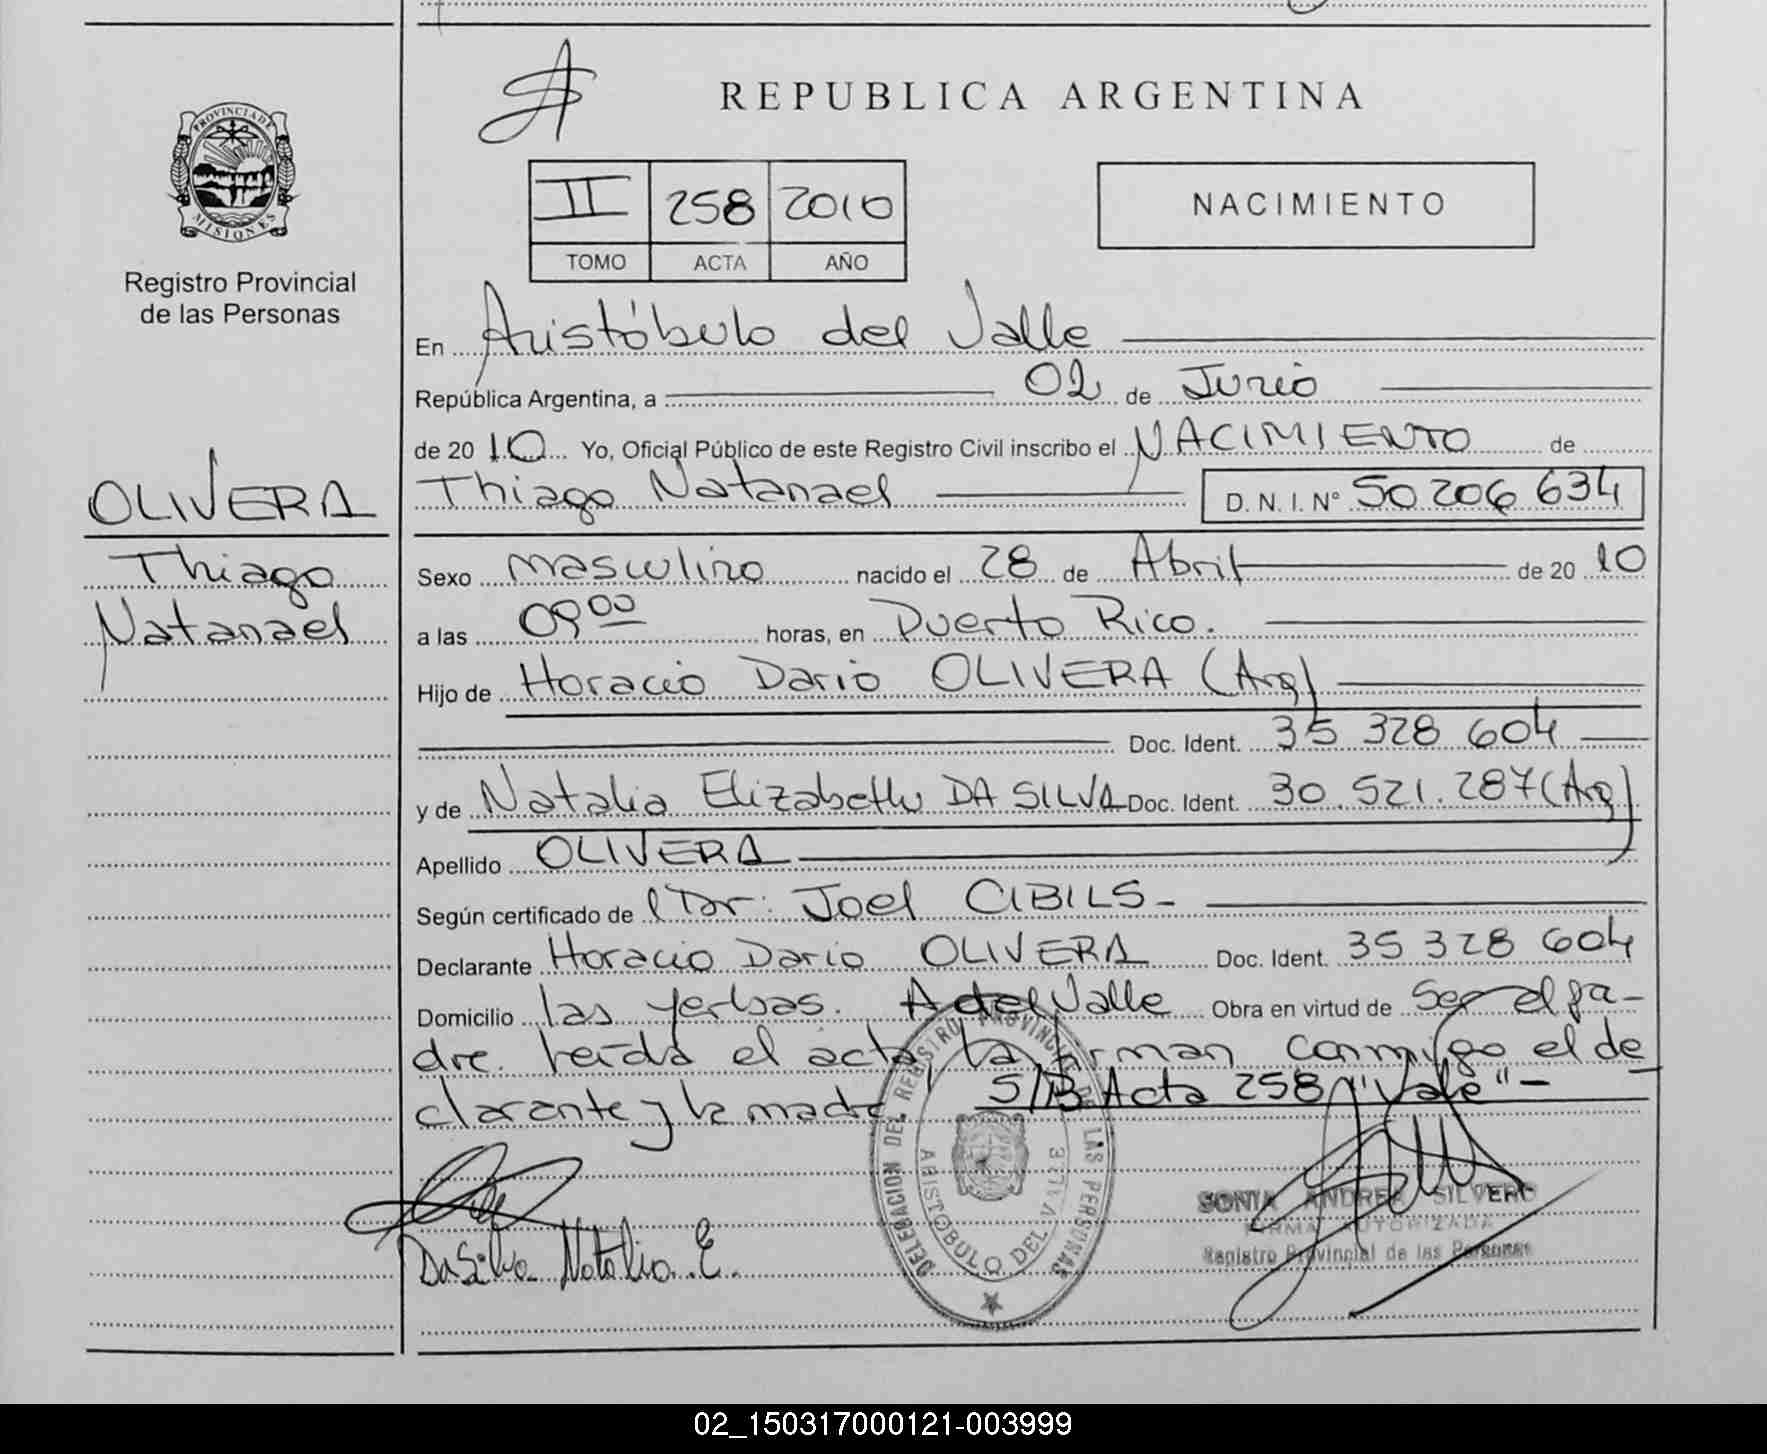 REPUBLICA ARGENTINA
PROVINCIA DE
MISIONES
Registro Provincial
de las Personas
II 258 2010
TOMO ACTA AÑO
NACIMIENTO
En Aristóbulo del Valle
República Argentina, a 02 de Junio
de 20 10 Yo, Oficial Público de este Registro Civil inscribo el NACIMIENTO de
Thiago Natanael D. N. I. N° 50 206 634
OLIVERA
Thiago
Natanael
Sexo masculino nacido el 28 de Abril de 20 10
a las 09 00 horas, en Puerto Rico.
Hijo de Horacio Dario OLIVERA (Arg)
Doc. Ident. 35 328 604
y de Natalia Elizabeth DA SILVA Doc. Ident. 30.521.287 (Arg)
Apellido OLIVERA
Según certificado de Dr: Joel CIBILS -
Declarante Horacio Dario OLIVERA Doc. Ident. 35 328 604
Domicilio las yerbas. A del Valle Obra en virtud de Ser el pa-
dre. leída el acta la firman conmigo el de
clarante y la madre S/B Acta 258 "Vale" -
DELEGACION DEL REGISTRO PROVINCIAL DE LAS PERSONAS
ARISTOBULO DEL VALLE
Da Silva Natalia E.
SONIA ANDREA SILVERO
FIRMA AUTORIZADA
Registro Provincial de las Personas
02_150317000121-003999